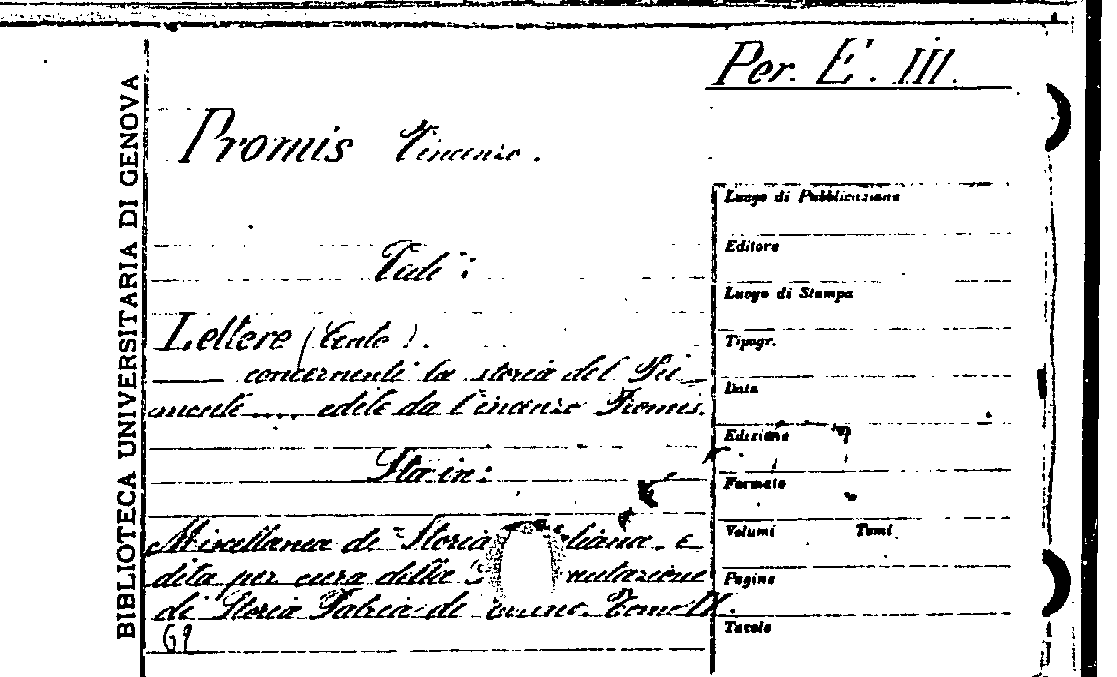 Per. E. III.
BIBLIOTECA UNIVERSITARIA DI GENOVA
Promis Vincenzo.
Vedi:
Lettere (Cento).
concernenti la storia del Pie
monte .... edite da Vincenzo Promis.
Sta in:
Miscellanea di Storia e
dita per cura della
di Storia Patria di Tomo IX.
69
Luogo di Pubblicazione
Editore
Luogo di Stampa
Tipogr.
Data
Edizione
Formato
Volumi Tomi
Pagine
Tavole